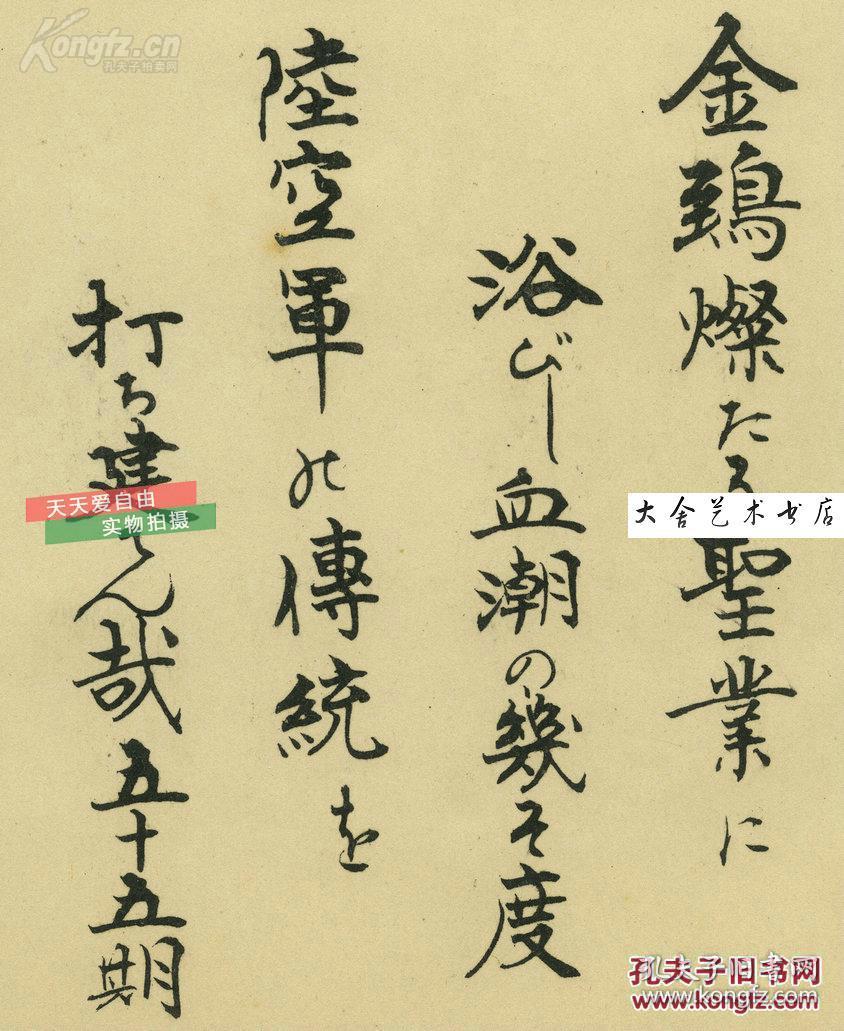 金鵄燦たる聖業に
浴びし血潮の幾そ度
陸空軍の傳統を
打ち建てん哉五十五期
Kongfz.cn
孔夫子拍卖网
天天爱自由
实物拍摄
大舍艺术书店
孔夫子旧书网
www.kongfz.com